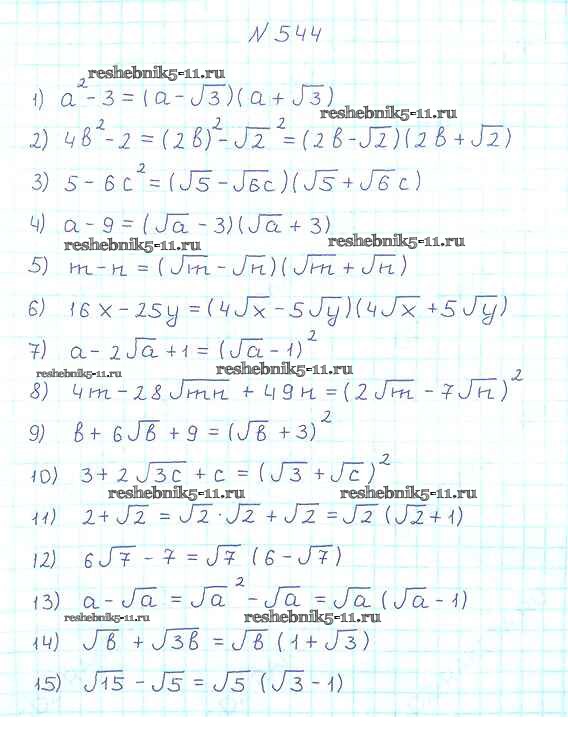 № 544
reshebnik5-11.ru
1) a² - 3 = (a - √3)(a + √3)
reshebnik5-11.ru
2) 4b² - 2 = (2b)² - √2² = (2b - √2)(2b + √2)
3) 5 - 6c² = (√5 - √6c)(√5 + √6 c)
4) a - 9 = (√a - 3)(√a + 3)
reshebnik5-11.ru reshebnik5-11.ru
5) m - n = (√m - √n)(√m + √n)
6) 16x - 25y = (4√x - 5√y)(4√x + 5√y)
7) a - 2√a + 1 = (√a - 1)²
reshebnik5-11.ru reshebnik5-11.ru
8) 4m - 28√mn + 49n = (2√m - 7√n)²
9) b + 6√b + 9 = (√b + 3)²
10) 3 + 2√3c + c = (√3 + √c)²
reshebnik5-11.ru reshebnik5-11.ru
11) 2 + √2 = √2 · √2 + √2 = √2 (√2 + 1)
12) 6√7 - 7 = √7 (6 - √7)
13) a - √a = √a² - √a = √a (√a - 1)
reshebnik5-11.ru reshebnik5-11.ru
14) √b + √3b = √b (1 + √3)
15) √15 - √5 = √5 (√3 - 1)